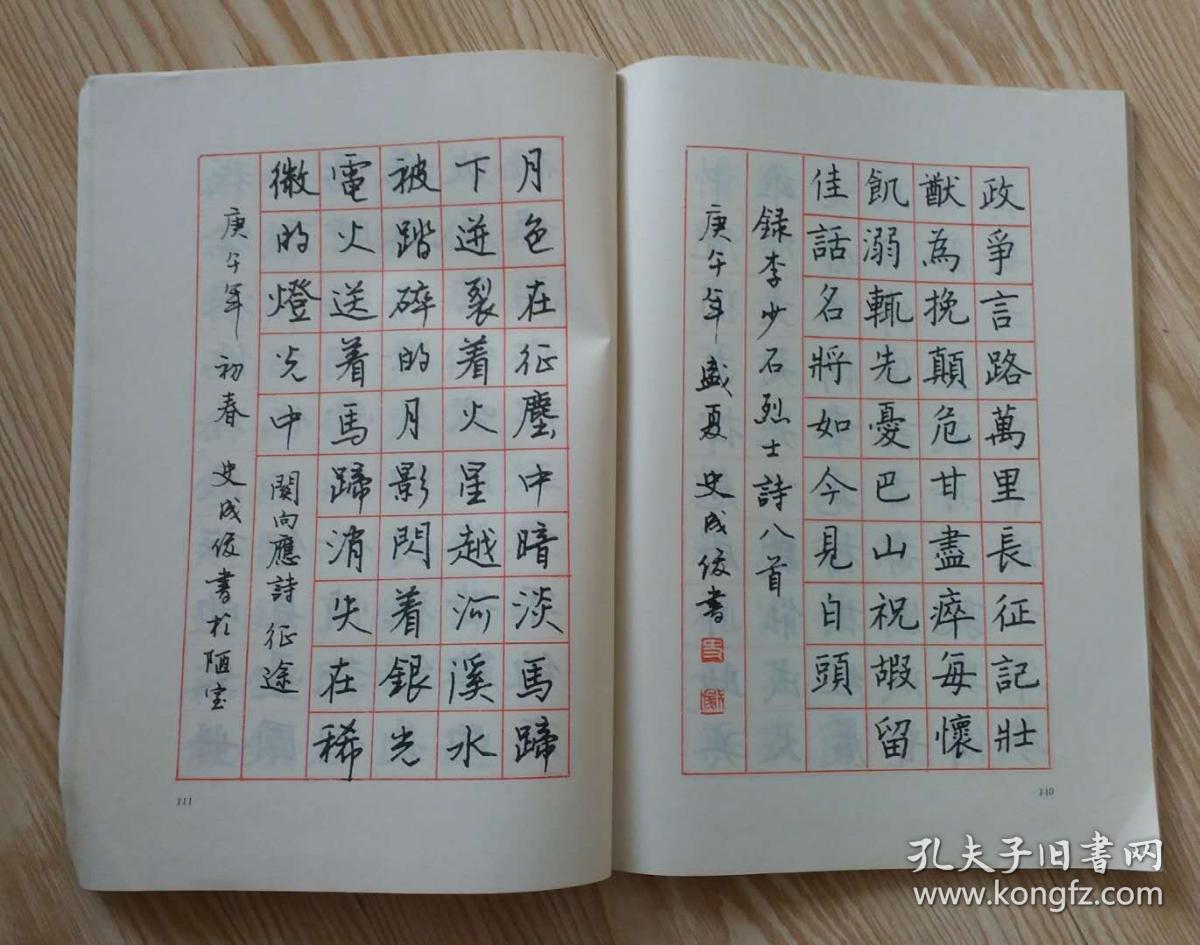 政爭言路萬里長征記壯
猷為挽顛危甘盡瘁每懷
飢溺輒先憂巴山祝嘏留
佳話名將如今見白頭
録李少石烈士詩八首
庚午年盛夏史成俊書
110
月色在征塵中暗淡馬蹄
下迸裂着火星越河溪水
被踏碎的月影閃着銀光
電火送着馬蹄消失在稀
微的燈光中 關向應詩征途
庚午年初春 史成俊書於陋室
111
孔夫子旧書网
www.kongfz.com